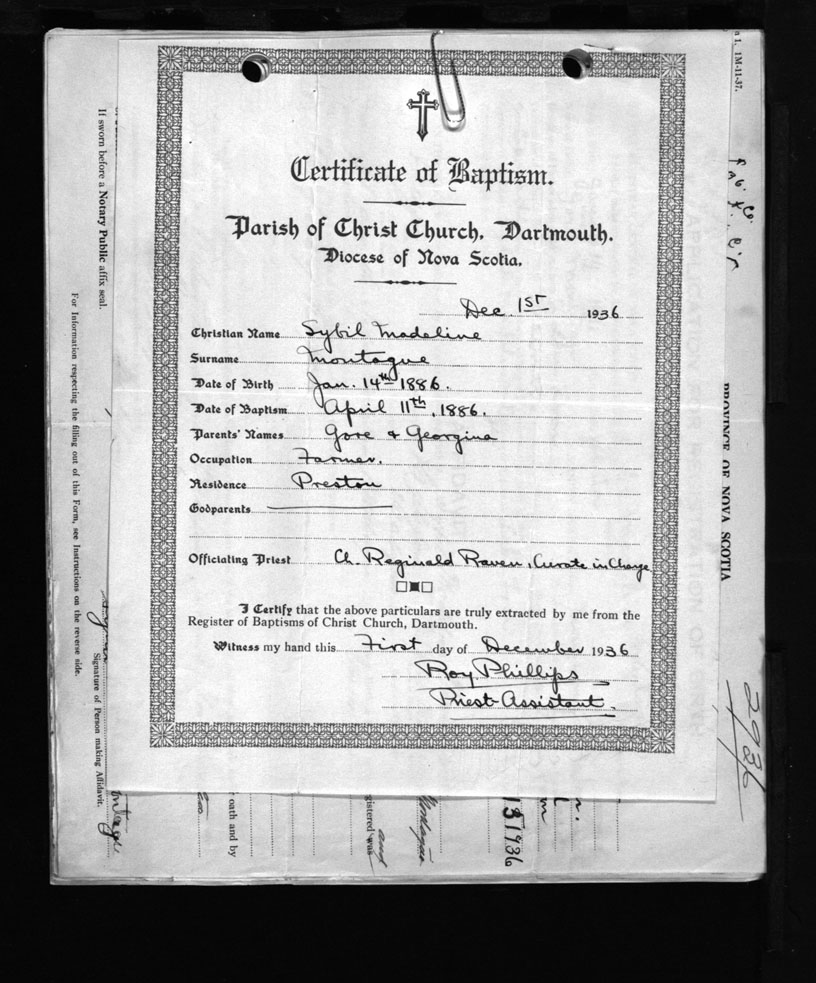 Certificate of Baptism.
Parish of Christ Church, Dartmouth.
Diocese of Nova Scotia.
Dec. 1ST 1936
Christian Name Sybil Madeline
Surname Montague
Date of Birth Jan. 14th 1886.
Date of Baptism April 11th, 1886.
Parents' Names Gore & Georgina
Occupation Farmer.
Residence Preston
Godparents
Officiating Priest Ch. Reginald Raven, Curate in Charge
I Certify that the above particulars are truly extracted by me from the
Register of Baptisms of Christ Church, Dartmouth.
Witness my hand this First day of December 1936
Roy Phillips
Priest-Assistant.
If sworn before a Notary Public affix seal.
For Information respecting the filling out of this Form, see Instructions on the reverse side.
Signature of Person making Affidavit.
1M-11-37.
PROVINCE OF NOVA SCOTIA
2936
oath and by
gistered was
and
1936